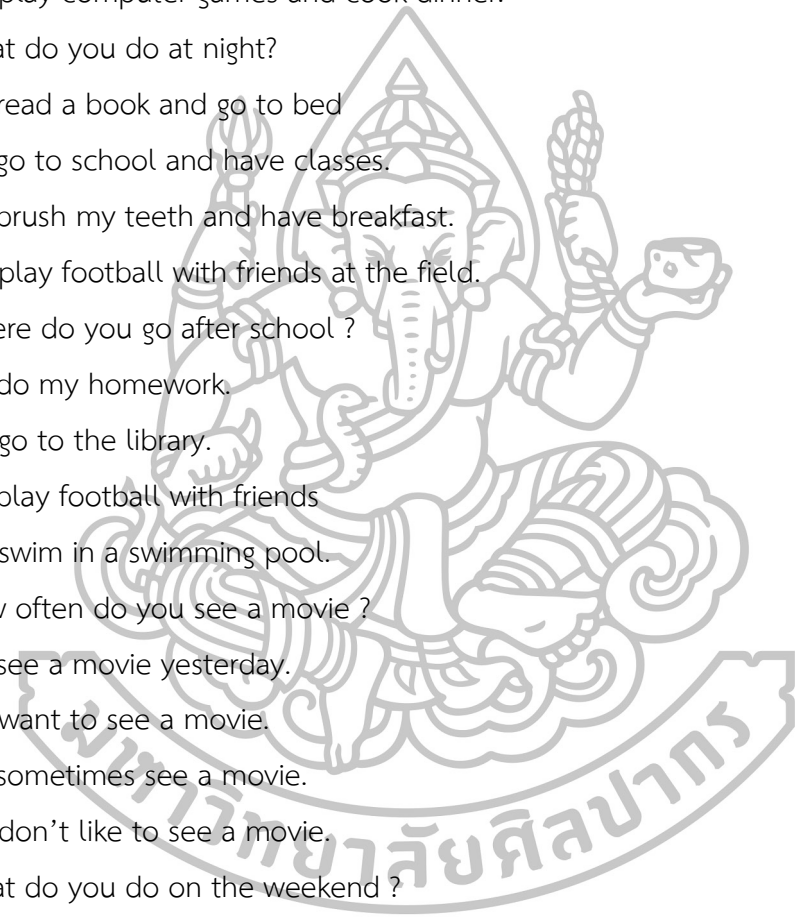 play computer games and cook dinner.
at do you do at night?
read a book and go to bed
go to school and have classes.
brush my teeth and have breakfast.
play football with friends at the field.
ere do you go after school ?
do my homework.
go to the library.
play football with friends
swim in a swimming pool.
often do you see a movie ?
see a movie yesterday.
want to see a movie.
sometimes see a movie.
don’t like to see a movie.
at do you do on the weekend ?
มหาวิทยาลัยศิลปากร